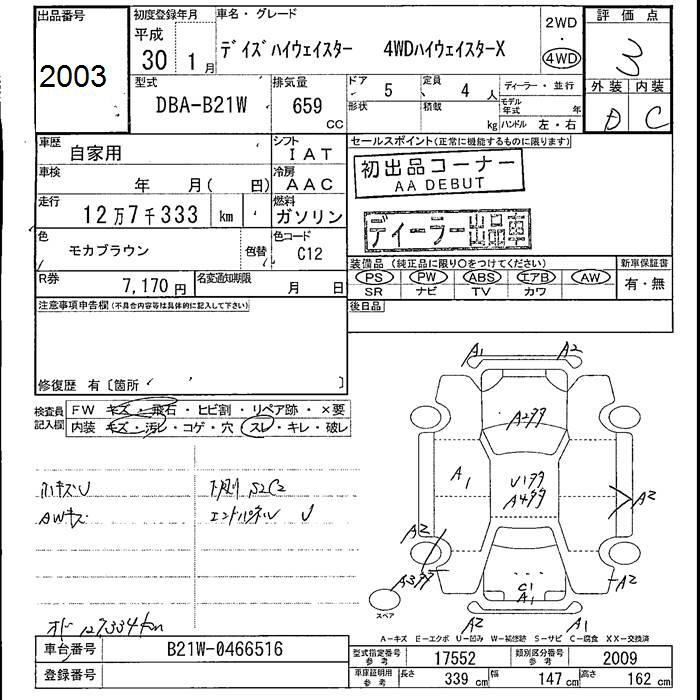 出品番号
2003
初度登録年月
平成
30 1月
車名・グレード
デイズハイウェイスター 4WDハイウェイスターX
2WD
・
4WD
評価点
3
外装 内装
D C
型式
DBA-B21W
排気量
659
CC
ドア
5
定員
4 人
形状
積載
kg
ディーラー・並行
モデル年式 年
ハンドル 左・右
車歴
自家用
シフト
IAT
車検
年 月( 日)
冷房
AAC
走行
12万7千333 km
燃料
ガソリン
色
モカブラウン
色替
色コード
C12
R券
7,170円
名変通知期限
月 日
セールスポイント(正常に機能するものに限ります)
初出品コーナー
AA DEBUT
ディーラー出品車
装備品(純正品に限り○をつけてください)
PS PW ABS エアB AW
SR ナビ TV カワ
新車保証書
有・無
後日品
注意事項申告欄(不具合内容等は具体的に記入して下さい)
修復歴 有〔箇所 〕
検査員記入欄
FW キズ・飛石・ヒビ割・リペア跡・×要
内装 キズ・汚レ・コゲ・穴・スレ・キレ・破レ
小キズU
AWキズ
下廻り S2C2
エンドパネル U
オド 127334km
A1 A2
A2
A1
A2
A2
A2
C1
A1
A2 A1
スペア
A-キズ E-エクボ U-凹み W-補修跡 S-サビ C-腐食 XX-交換済
車台番号
B21W-0466516
登録番号
型式指定番号
参考
17552
類別区分番号
参考
2009
車庫証明用
参考
長さ
339 cm
幅
147 cm
高さ
162 cm